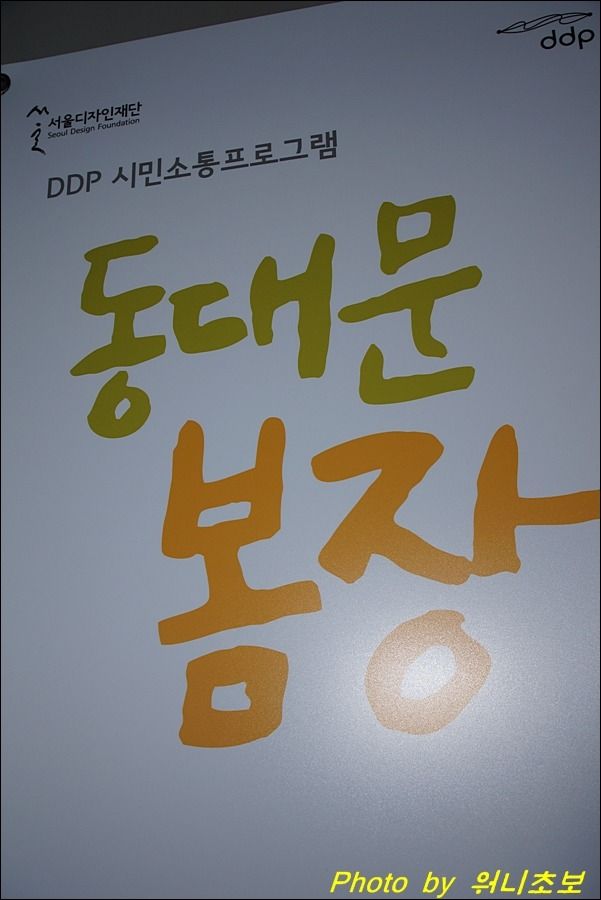 ddp
서울디자인재단
Seoul Design Foundation
DDP 시민소통프로그램
동대문
봄장
Photo by 워니초보